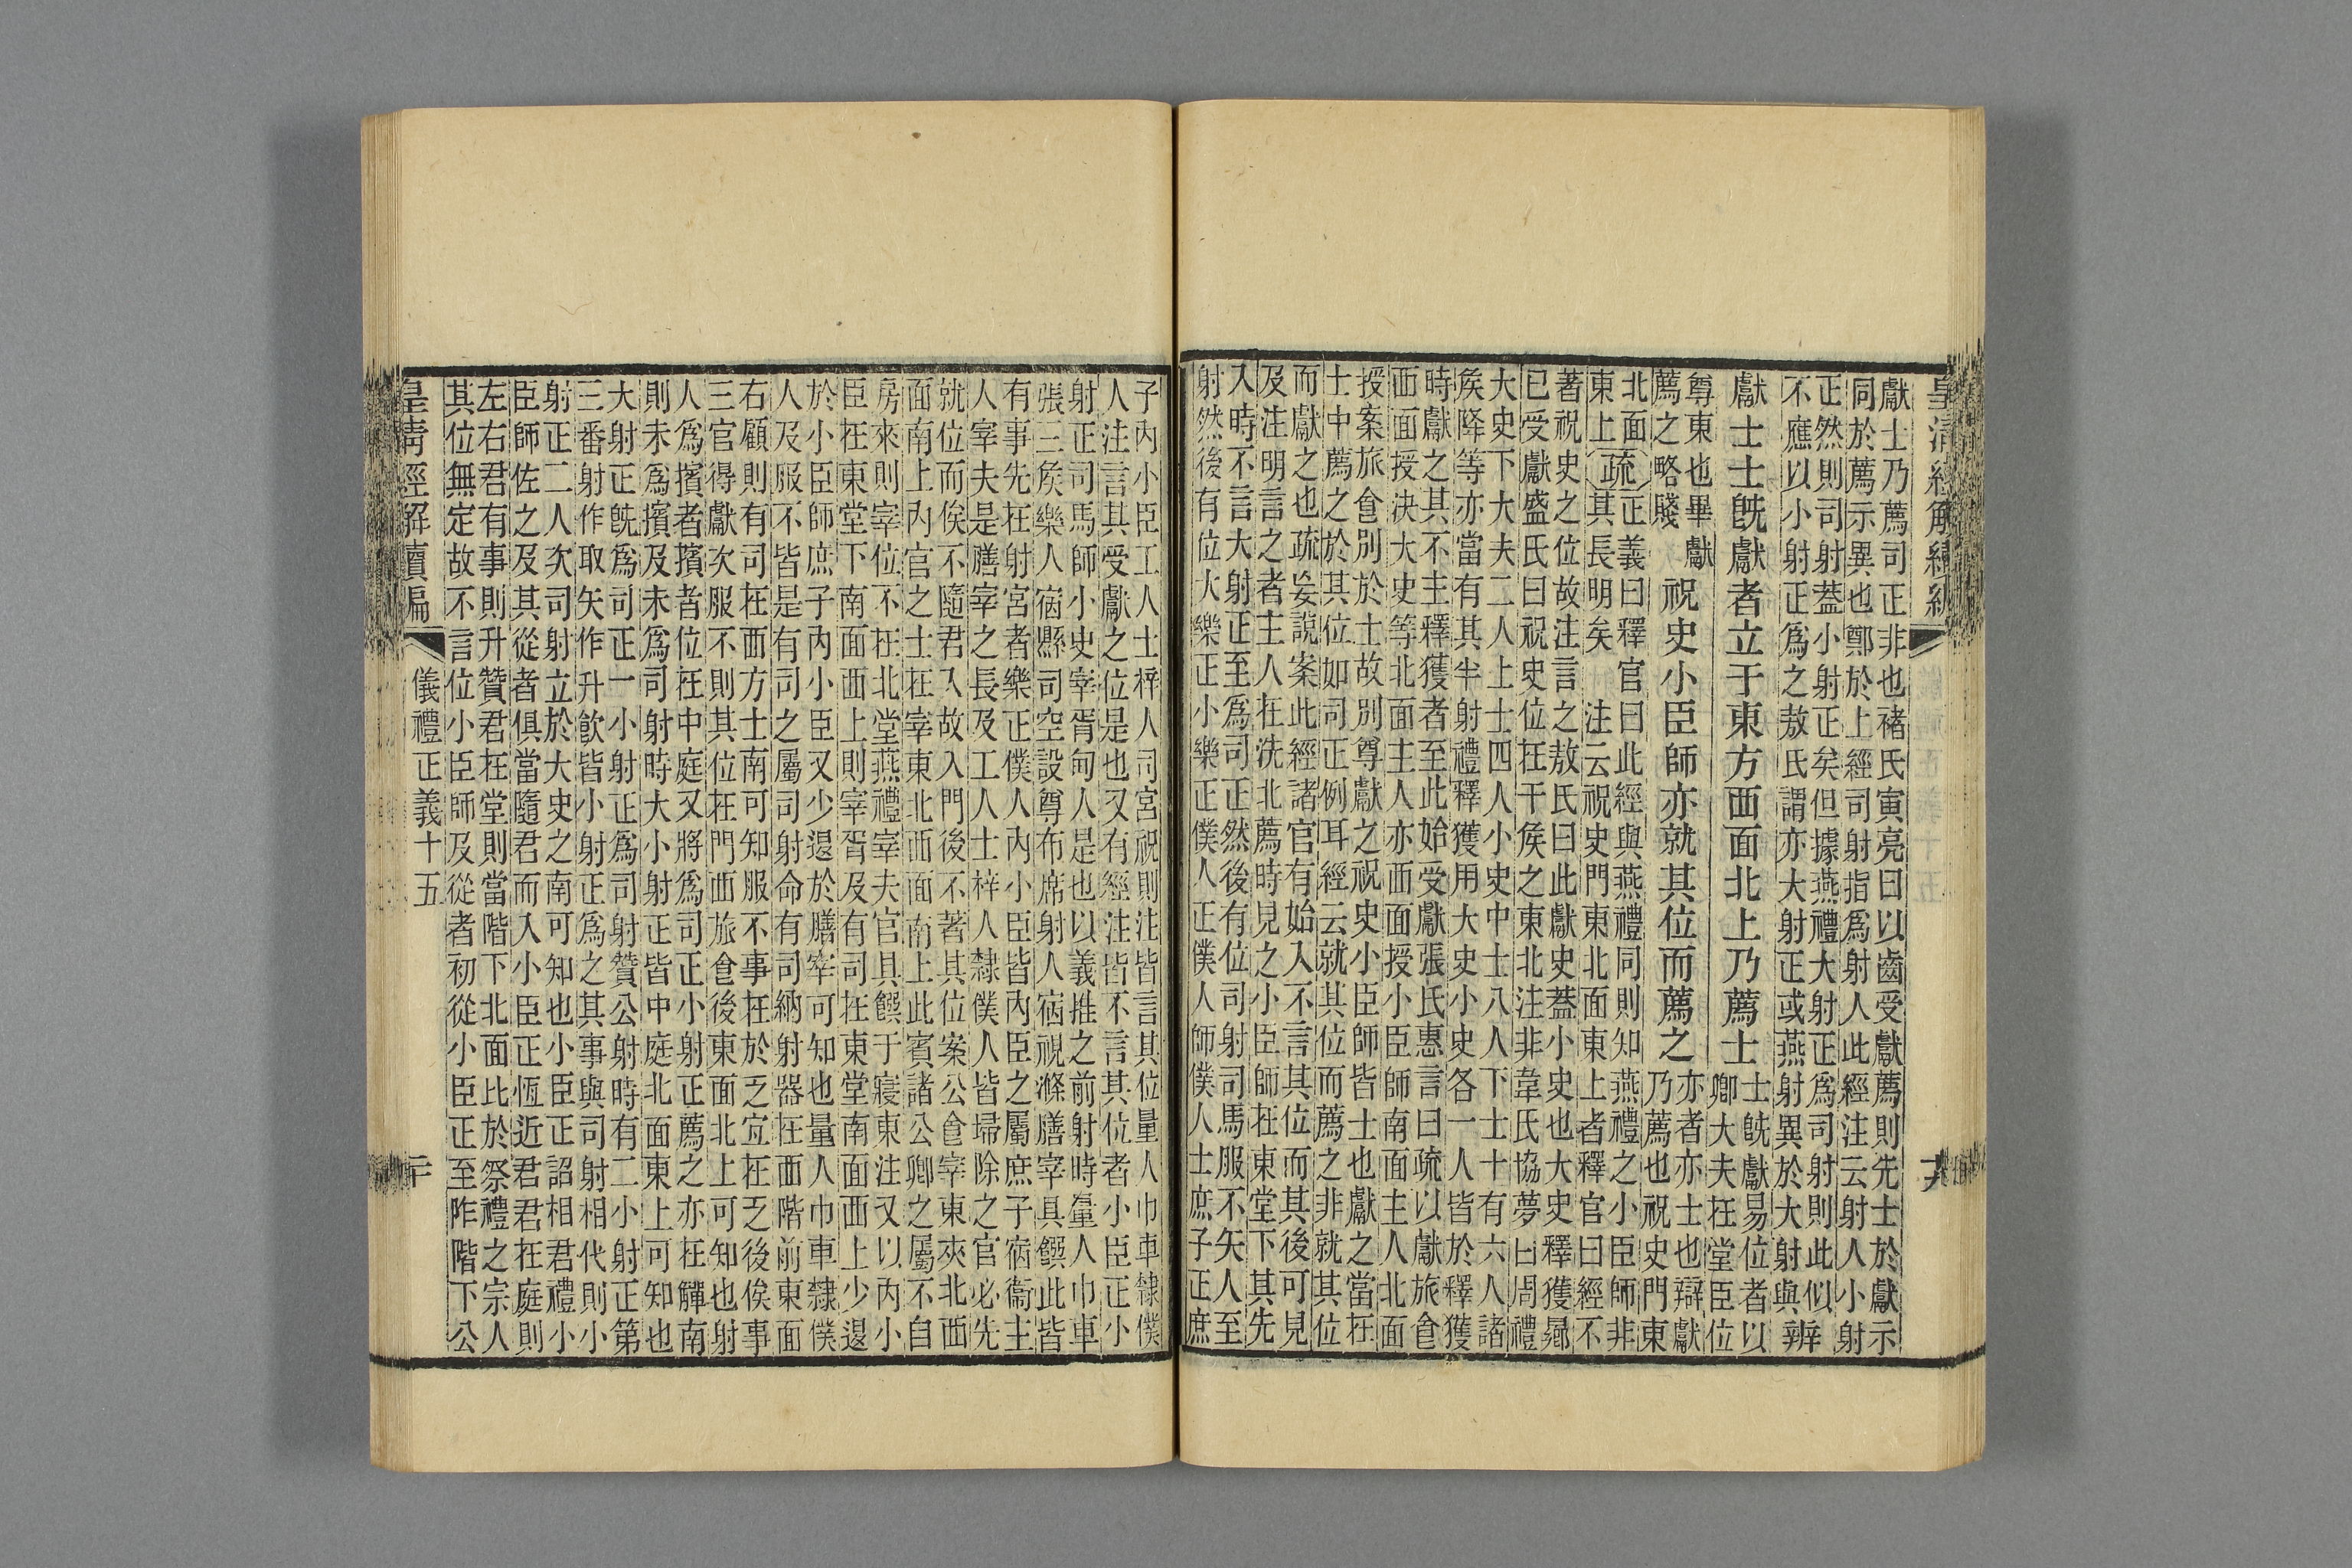 皇清經解續編
獻士乃薦司正非也褚氏寅亮曰以齒受獻薦則先士於獻示
同於薦示異也鄭於上經司射指爲射人此經注云射人小射
正然則司射葢小射正矣但據燕禮大射正爲司射則此似辨
不應以小射正爲之敖氏謂亦大射正或燕射異於大射與
獻士士旣獻者立于東方西面北上乃薦士
士旣獻易位者以
卿大夫在堂臣位
尊東也畢獻
薦之略賤
祝史小臣師亦就其位而薦之
亦者亦士也辯獻
乃薦也祝史門東
北面
東上
疏
正義曰釋官曰此經與燕禮同則知燕禮之小臣師非
其長明矣 注云祝史門東北面東上者釋官曰經不
著祝史之位故注言之敖氏曰此獻史蓋小史也大史釋獲歸
已受獻盛氏曰祝史位在干侯之東北注非韋氏協夢曰周禮
大史下大夫二人上士四人小史中士八人下士十有六人諸
侯降等亦當有其半射禮釋獲用大史小史各一人皆於釋獲
時獻之其不主釋獲者至此始受獻張氏惠言曰疏以獻旅食
西面授決大史等北面主人亦西面授小臣師南面主人北面
授案旅食別於士故別尊獻之祝史小臣師皆士也獻之當在
士中薦之於其位如司正例耳經云就其位而薦之非就其位
而獻之也疏妄說案此經諸官有始入不言其位而其後可見
及注明言之者主人在洗北薦時見之小臣師在東堂下其先
入時不言大射正至爲司正然後有位司射司馬服不矢人至
射然後有位大樂正小樂正僕人正僕人師僕人士庶子正庶
子內小臣工人士梓人司宮祝則注皆言其位量人巾車隸僕
人注言其受獻之位是也又有經注皆不言其位者小臣正小
射正司馬師小史宰胥甸人是也以義推之前射時量人巾車
張三侯樂人宿縣司空設尊布席射人宿視滌膳宰具饌此皆
有事先在射宮者樂正僕人內小臣皆內臣之屬庶子宿衞主
人宰夫是膳宰之長及工人士梓人隸僕人皆埽除之官必先
就位而俟不隨君入故入門後不著其位案公食宰東夾北西
面南上內官之士在宰東北西面南上此賓諸公卿之屬不自
房來則宰位不在北堂燕禮宰夫官具饌于寢東注又以內小
臣在東堂下南面西上則宰胥及有司在東堂南面西上少退
於小臣師庶子內小臣又少退於膳宰可知也量人巾車隸僕
人及服不皆是有司之屬司射命有司納射器在西階前東面
右顧則有司在西方士南可知服不事在於乏宜在乏後俟事
三官得獻次服不則其位在門西旅食後東面北上可知也射
人爲擯者擯者位在中庭又將爲司正小射正薦之亦在觶南
則未爲擯及未爲司射時大小射正皆中庭北面東上可知也
大射正旣爲司正一小射正爲司射贊公射時有二小射正第
三番射作取矢作升飮皆小射正爲之其事與司射相代則小
射正二人次司射立於大史之南可知也小臣正詔相君禮小
臣師佐之及其從者俱當隨君而入小臣正恆近君君在庭則
左右君有事則升贊君在堂則當階下北面比於祭禮之宗人
其位無定故不言位小臣師及從者初從小臣正至阼階下公
皇清經解續編
儀禮正義十五